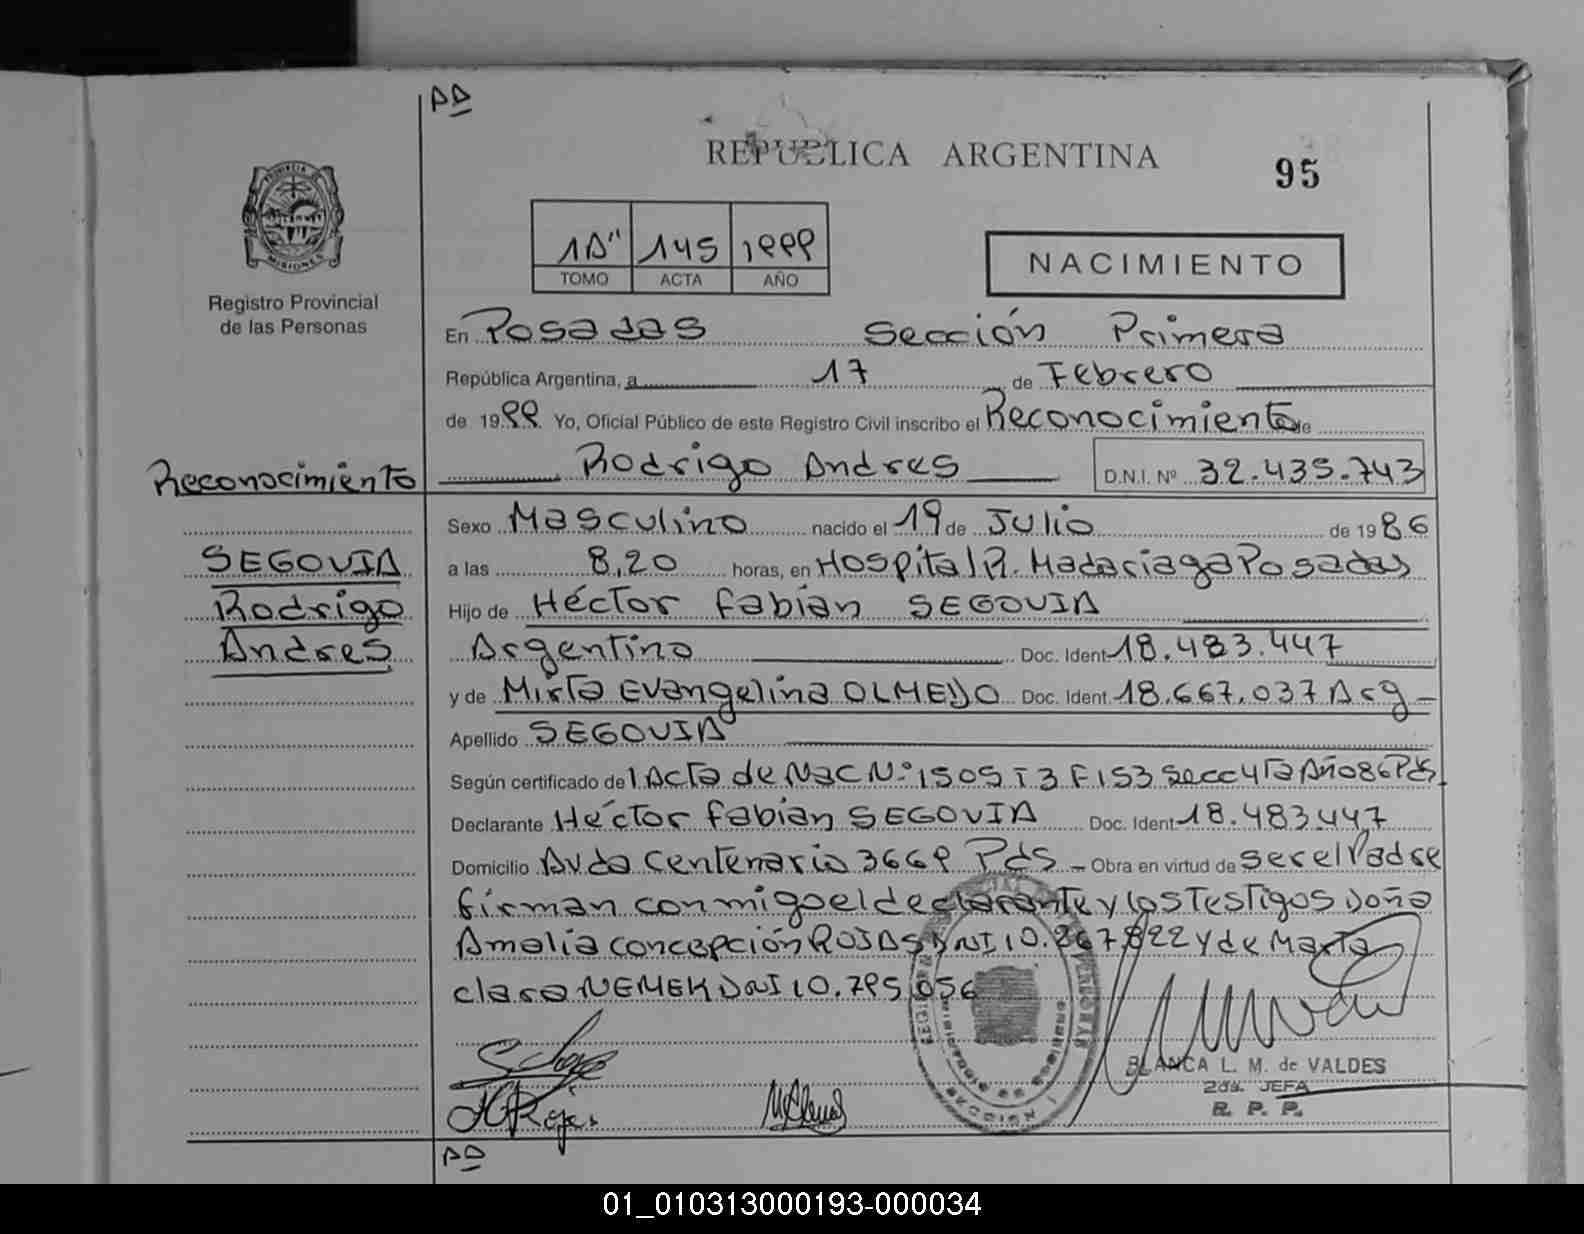 AA
REPUBLICA ARGENTINA
95
PROVINCIA DE
MISIONES
Registro Provincial
de las Personas
1A" 145 1999
TOMO ACTA AÑO
NACIMIENTO
En Posadas Sección Primera
República Argentina, a 17 de Febrero
de 1999 Yo, Oficial Público de este Registro Civil inscribo el Reconocimiento de
Rodrigo Andres D.N.I. Nº 32.435.743
Reconocimiento
SEGOVIA
Rodrigo
Andres
Sexo Masculino nacido el 19 de Julio de 1986
a las 8,20 horas, en Hospital R. Madariaga Posadas
Hijo de Héctor Fabián SEGOVIA
Argentino Doc. Ident 18.483.447
y de Mirta Evangelina OLMEDO Doc. Ident. 18.667.037 Arg
Apellido SEGOVIA
Según certificado de Acta de Nac N.º 1505 T3 F153 Secc 4ta Año 86 Pds
Declarante Héctor Fabián SEGOVIA Doc. Ident 18.483.447
Domicilio Avda Centenario 3669 Pds - Obra en virtud de ser el Padre
firman conmigo el declarante y los Testigos Doña
Amalia Concepción ROJAS DNI 10.267.822 y de Marta
Clara NEMEK DNI 10.795.056
BLANCA L. M. de VALDES
2da. JEFA
R. P. P.
AA
01_010313000193-000034